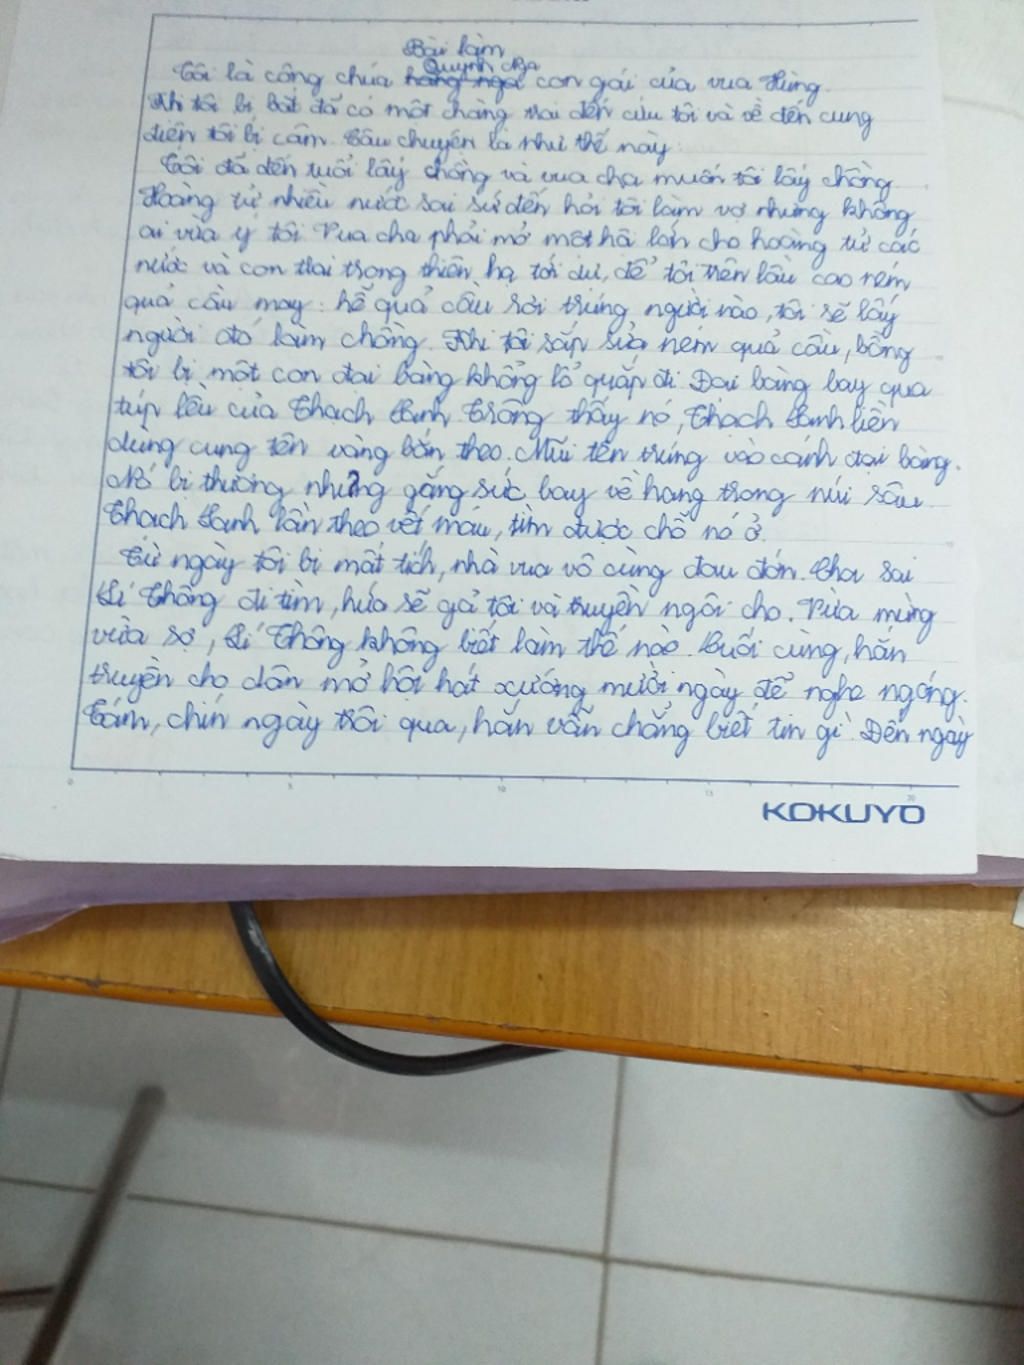 Bài làm
Quỳnh Nga
Tôi là công chúa hằng nga con gái của vua Hùng.
Khi tôi bị bắt đã có một chàng trai đến cứu tôi và về đến cung
điện tôi bị câm. Câu chuyện là như thế này:
Tôi đã đến tuổi lấy chồng và vua cha muốn tôi lấy chồng
Hoàng tử nhiều nước sai sứ đến hỏi tôi làm vợ nhưng không
ai vừa ý tôi. Vua cha phải mở một hội lớn cho hoàng tử các
nước và con trai trong thiên hạ tới dự, để tôi trên lầu cao ném
quả cầu may: hễ quả cầu rơi trúng người nào, tôi sẽ lấy
người đó làm chồng. Khi tôi sắp sửa ném quả cầu, bỗng
tôi bị một con đại bàng khổng lồ quắp đi. Đại bàng bay qua
túp lều của Thạch Sanh. Trông thấy nó, Thạch Sanh liền
dùng cung tên vàng bắn theo. Mũi tên trúng vào cánh đại bàng.
Nó bị thương nhưng gắng sức bay về hang trong núi sâu.
Thạch Sanh lần theo vết máu, tìm được chỗ nó ở.
Từ ngày tôi bị mất tích, nhà vua vô cùng đau đớn. Cha sai
Lí Thông đi tìm, hứa sẽ gả tôi và truyền ngôi cho. Vừa mừng
vừa sợ, Lí Thông không biết làm thế nào. Cuối cùng, hắn
truyền cho dân mở hội hát xướng mười ngày để nghe ngóng.
Tám, chín ngày trôi qua, hắn vẫn chẳng biết tin gì. Đến ngày
0 5 10 15 20
KOKUYO